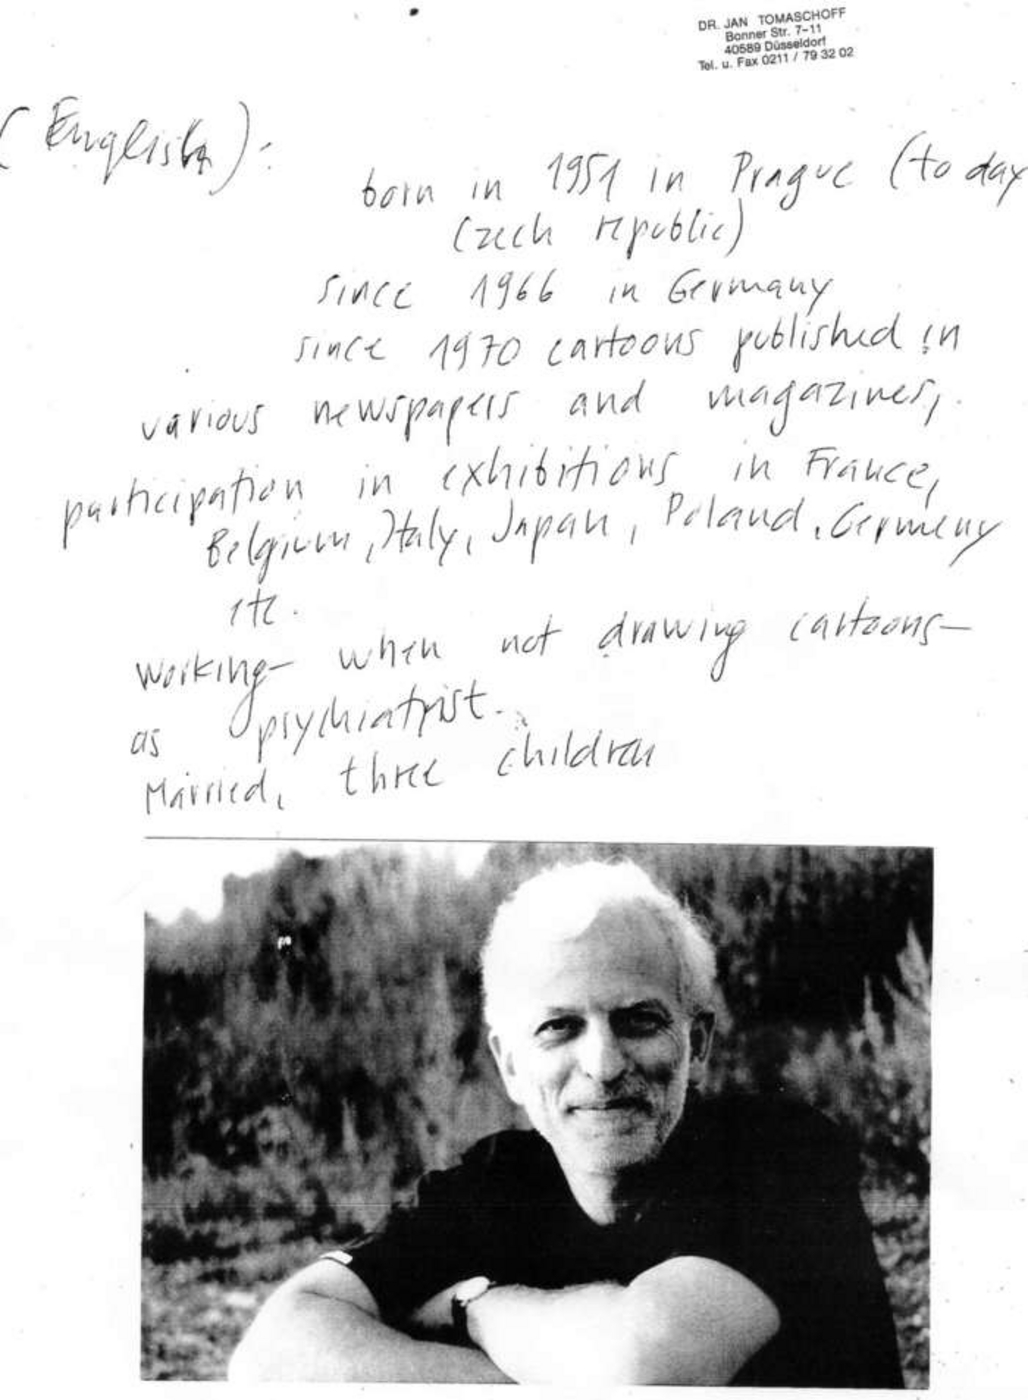 DR. JAN TOMASCHOFF
Bonner Str. 7-11
40589 Düsseldorf
Tel. u. Fax 0211 / 79 32 02
(English):
born in 1951 in Prague (to day
Czech republic)
since 1966 in Germany
since 1970 cartoons published in
various newspapers and magazines,
participation in exhibitions in France,
Belgium, Italy, Japan, Poland, Germany
etc.
working- when not drawing cartoons-
as psychiatrist.
Married, three children